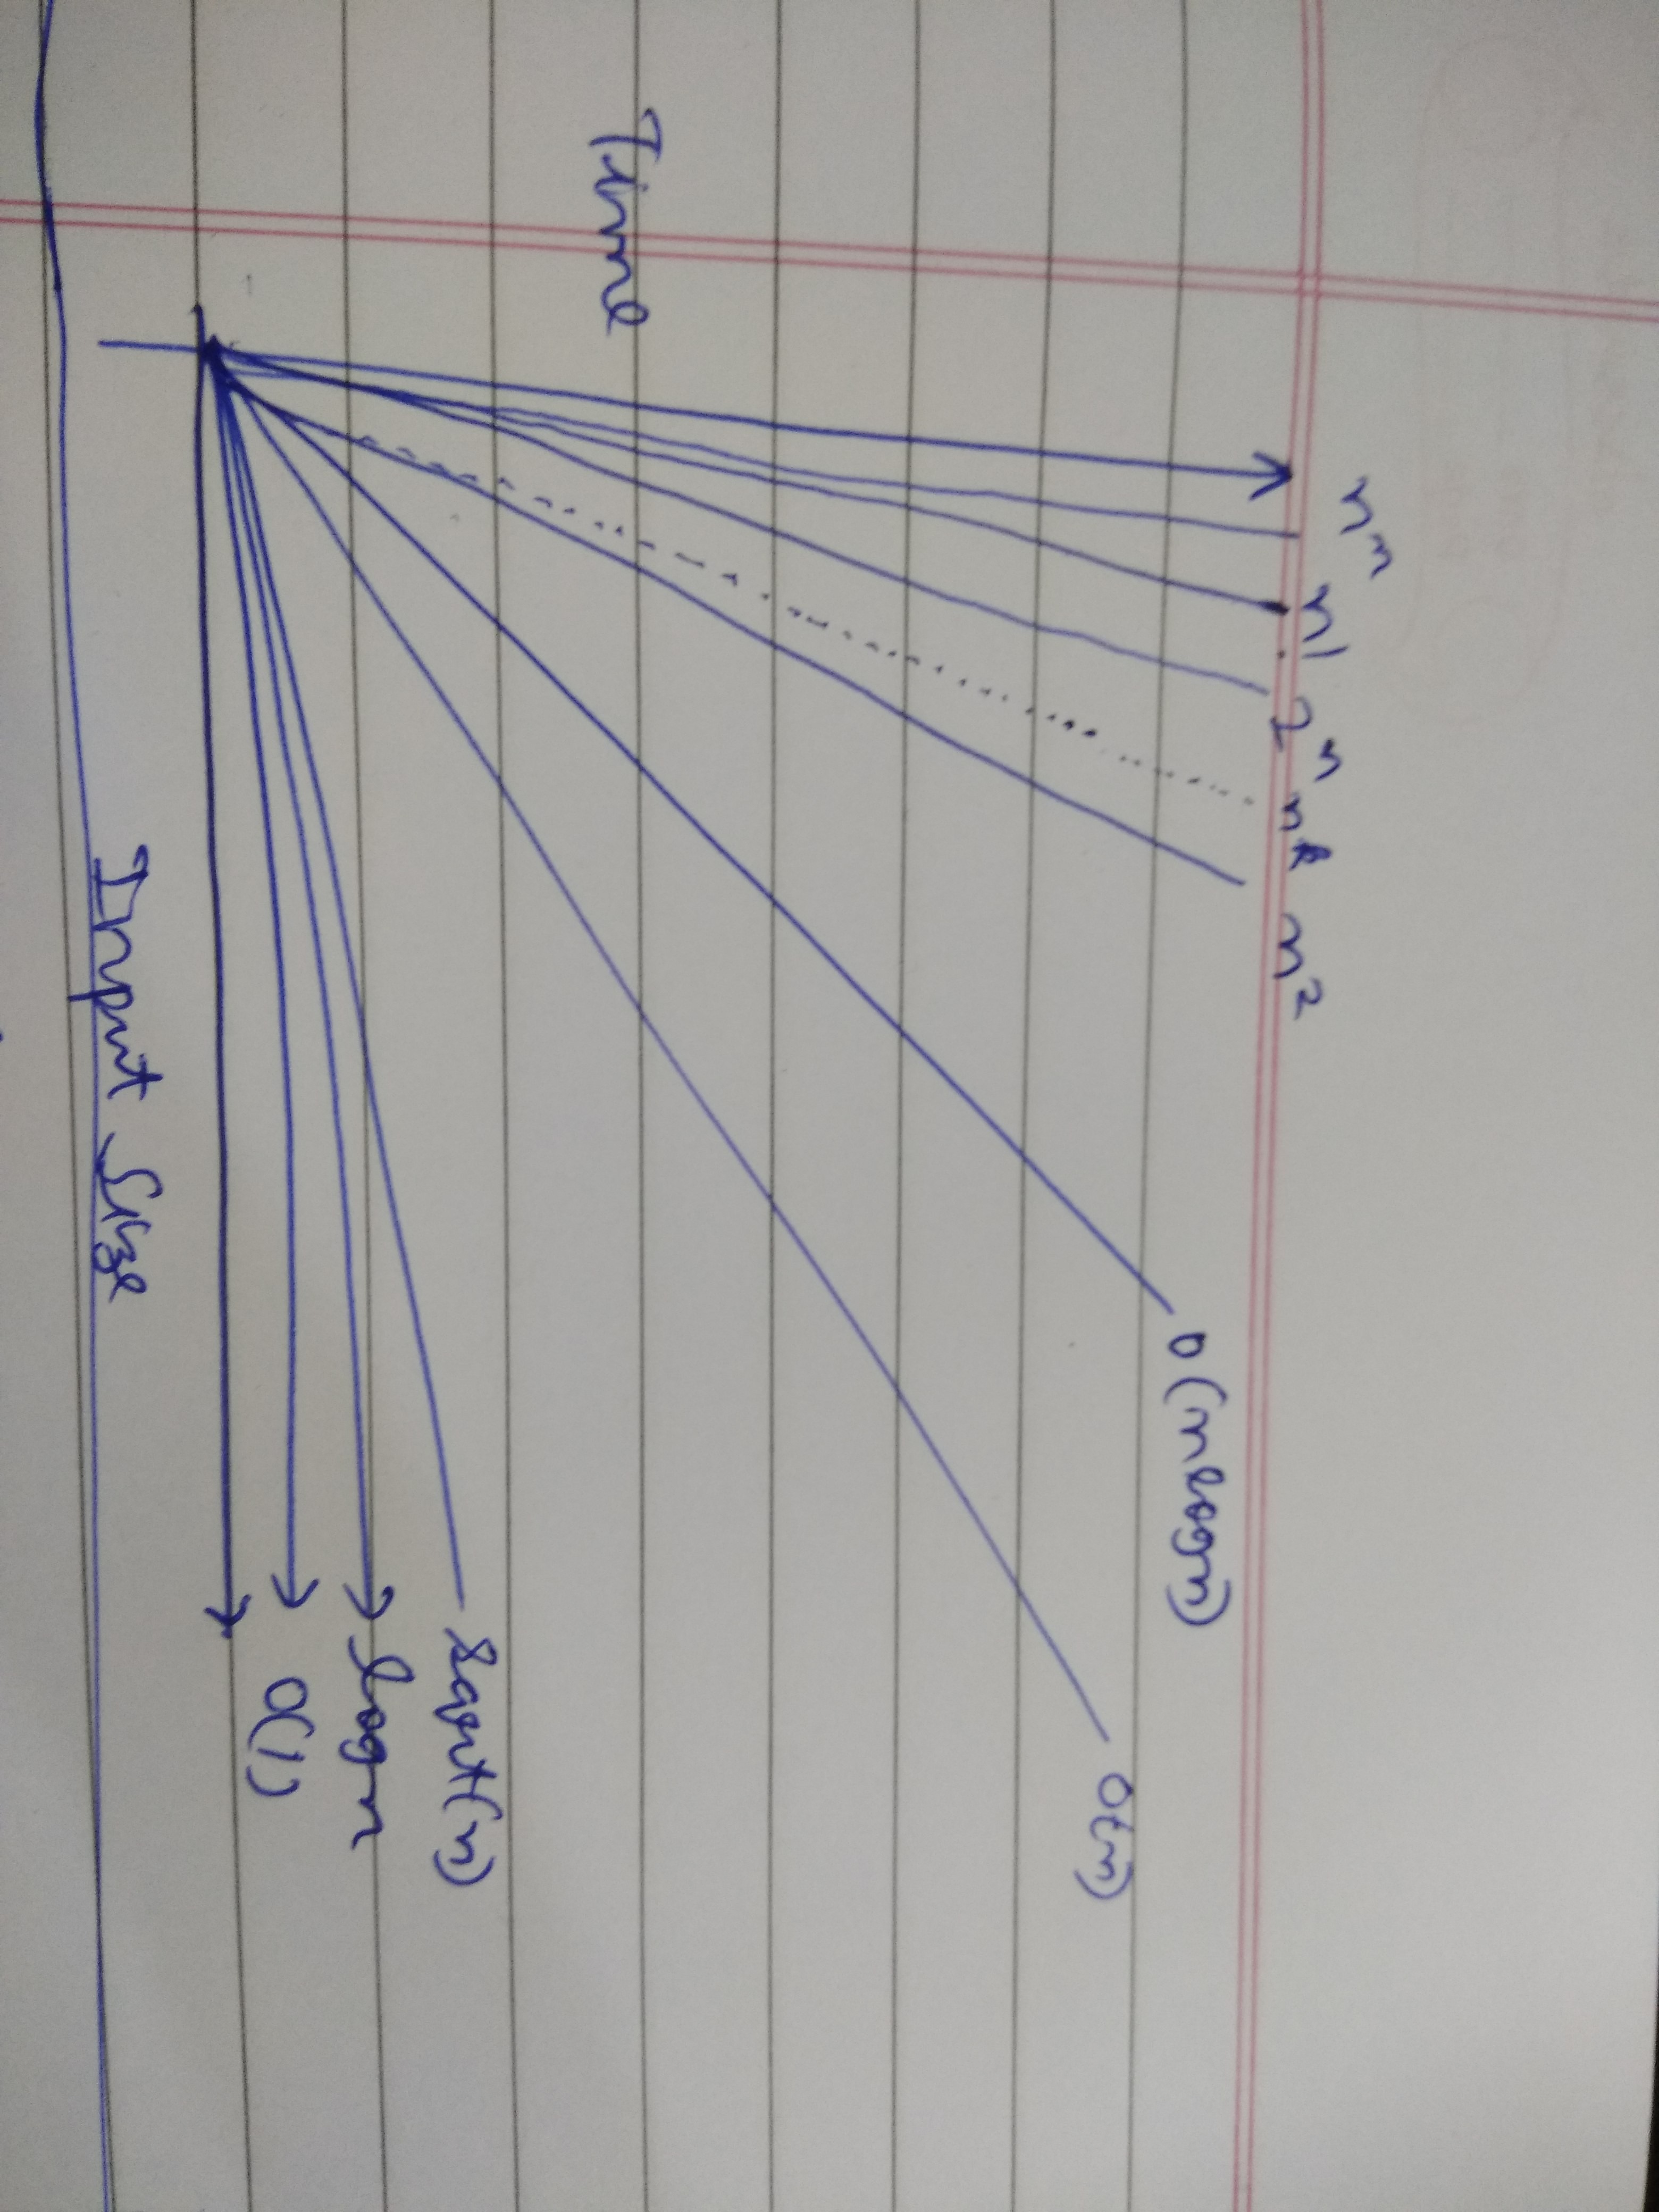 n^n n! 2^n n^k n^2
O(nlogn)
O(n)
Time
sqrt(n)
logn
O(1)
Input Size